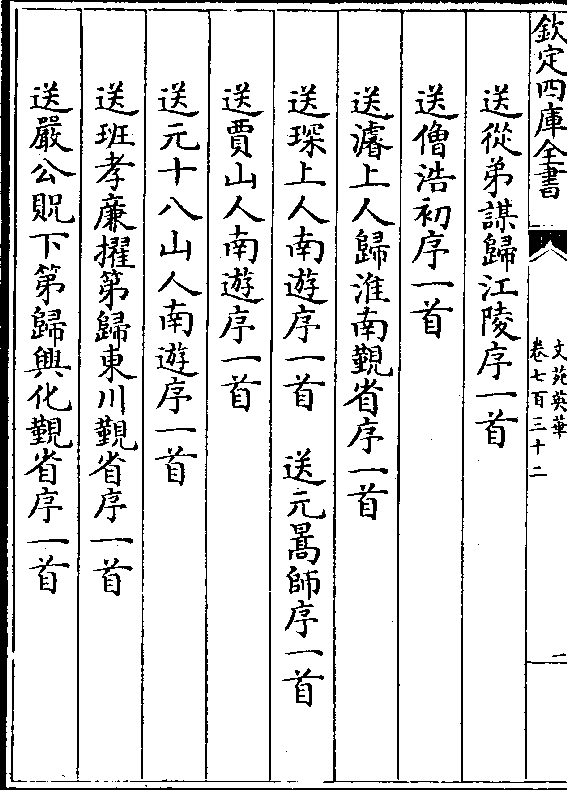 欽定四庫全書
文苑英華
卷七百三十二
二
送從弟謀歸江陵序一首
送僧浩初序一首
送濬上人歸淮南覲省序一首
送琛上人南遊序一首　送元暠師序一首
送賈山人南遊序一首
送元十八山人南遊序一首
送班孝廉擢第歸東川覲省序一首
送嚴公貺下第歸興化覲省序一首